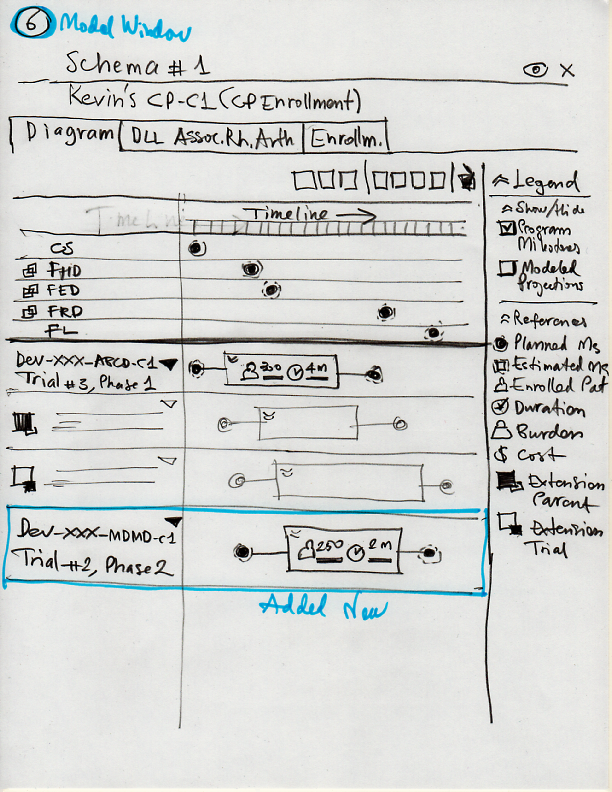 6 Model Window
Schema #1
X
Kevin's CP-C1 (CP Enrollment)
Diagram
DLL Assoc. Rh. Arth
Enrollm.
Timeline
Timeline →
CS
FHD
FED
FRD
FL
Dev-XXX-ABCD-C1
Trial #3, Phase 1
200 4m
Dev-XXX-MDMD-C1
Trial #2, Phase 2
250 2m
Added New
Legend
Show/Hide
Program
Milestones
Modeled
Projections
References
Planned Ms
Estimated Ms
Enrolled Pat
Duration
Burden
$ Cost
Extension
Parent
Extension
Trial